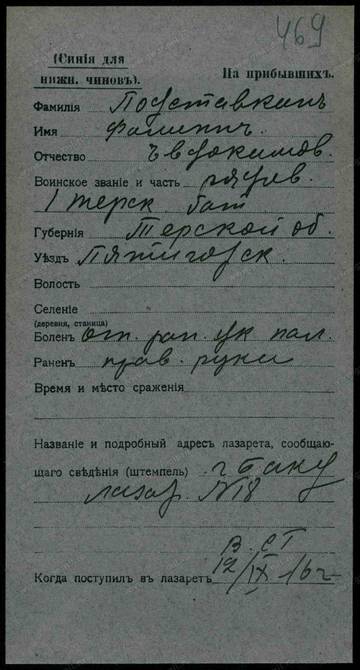 469
(Синія для
нижн. чиновъ).
На прибывшихъ.
Фамилія Подставкинъ
Имя
Отчество Евдокимов.
Воинское званіе и часть рядов.
1 Терск бат
Губернія Терской об.
Уѣздъ Пятигорск.
Волость
Селеніе
(деревня, станица)
Боленъ огн. ран. ук пал.
Раненъ прав. руки
Время и мѣсто сраженія
Названіе и подробный адресъ лазарета, сообщаю-
щаго свѣдѣнія (штемпель) г Баку
лазар. №18
В. СТ
Когда поступил въ лазаретъ 12/IX 16 г